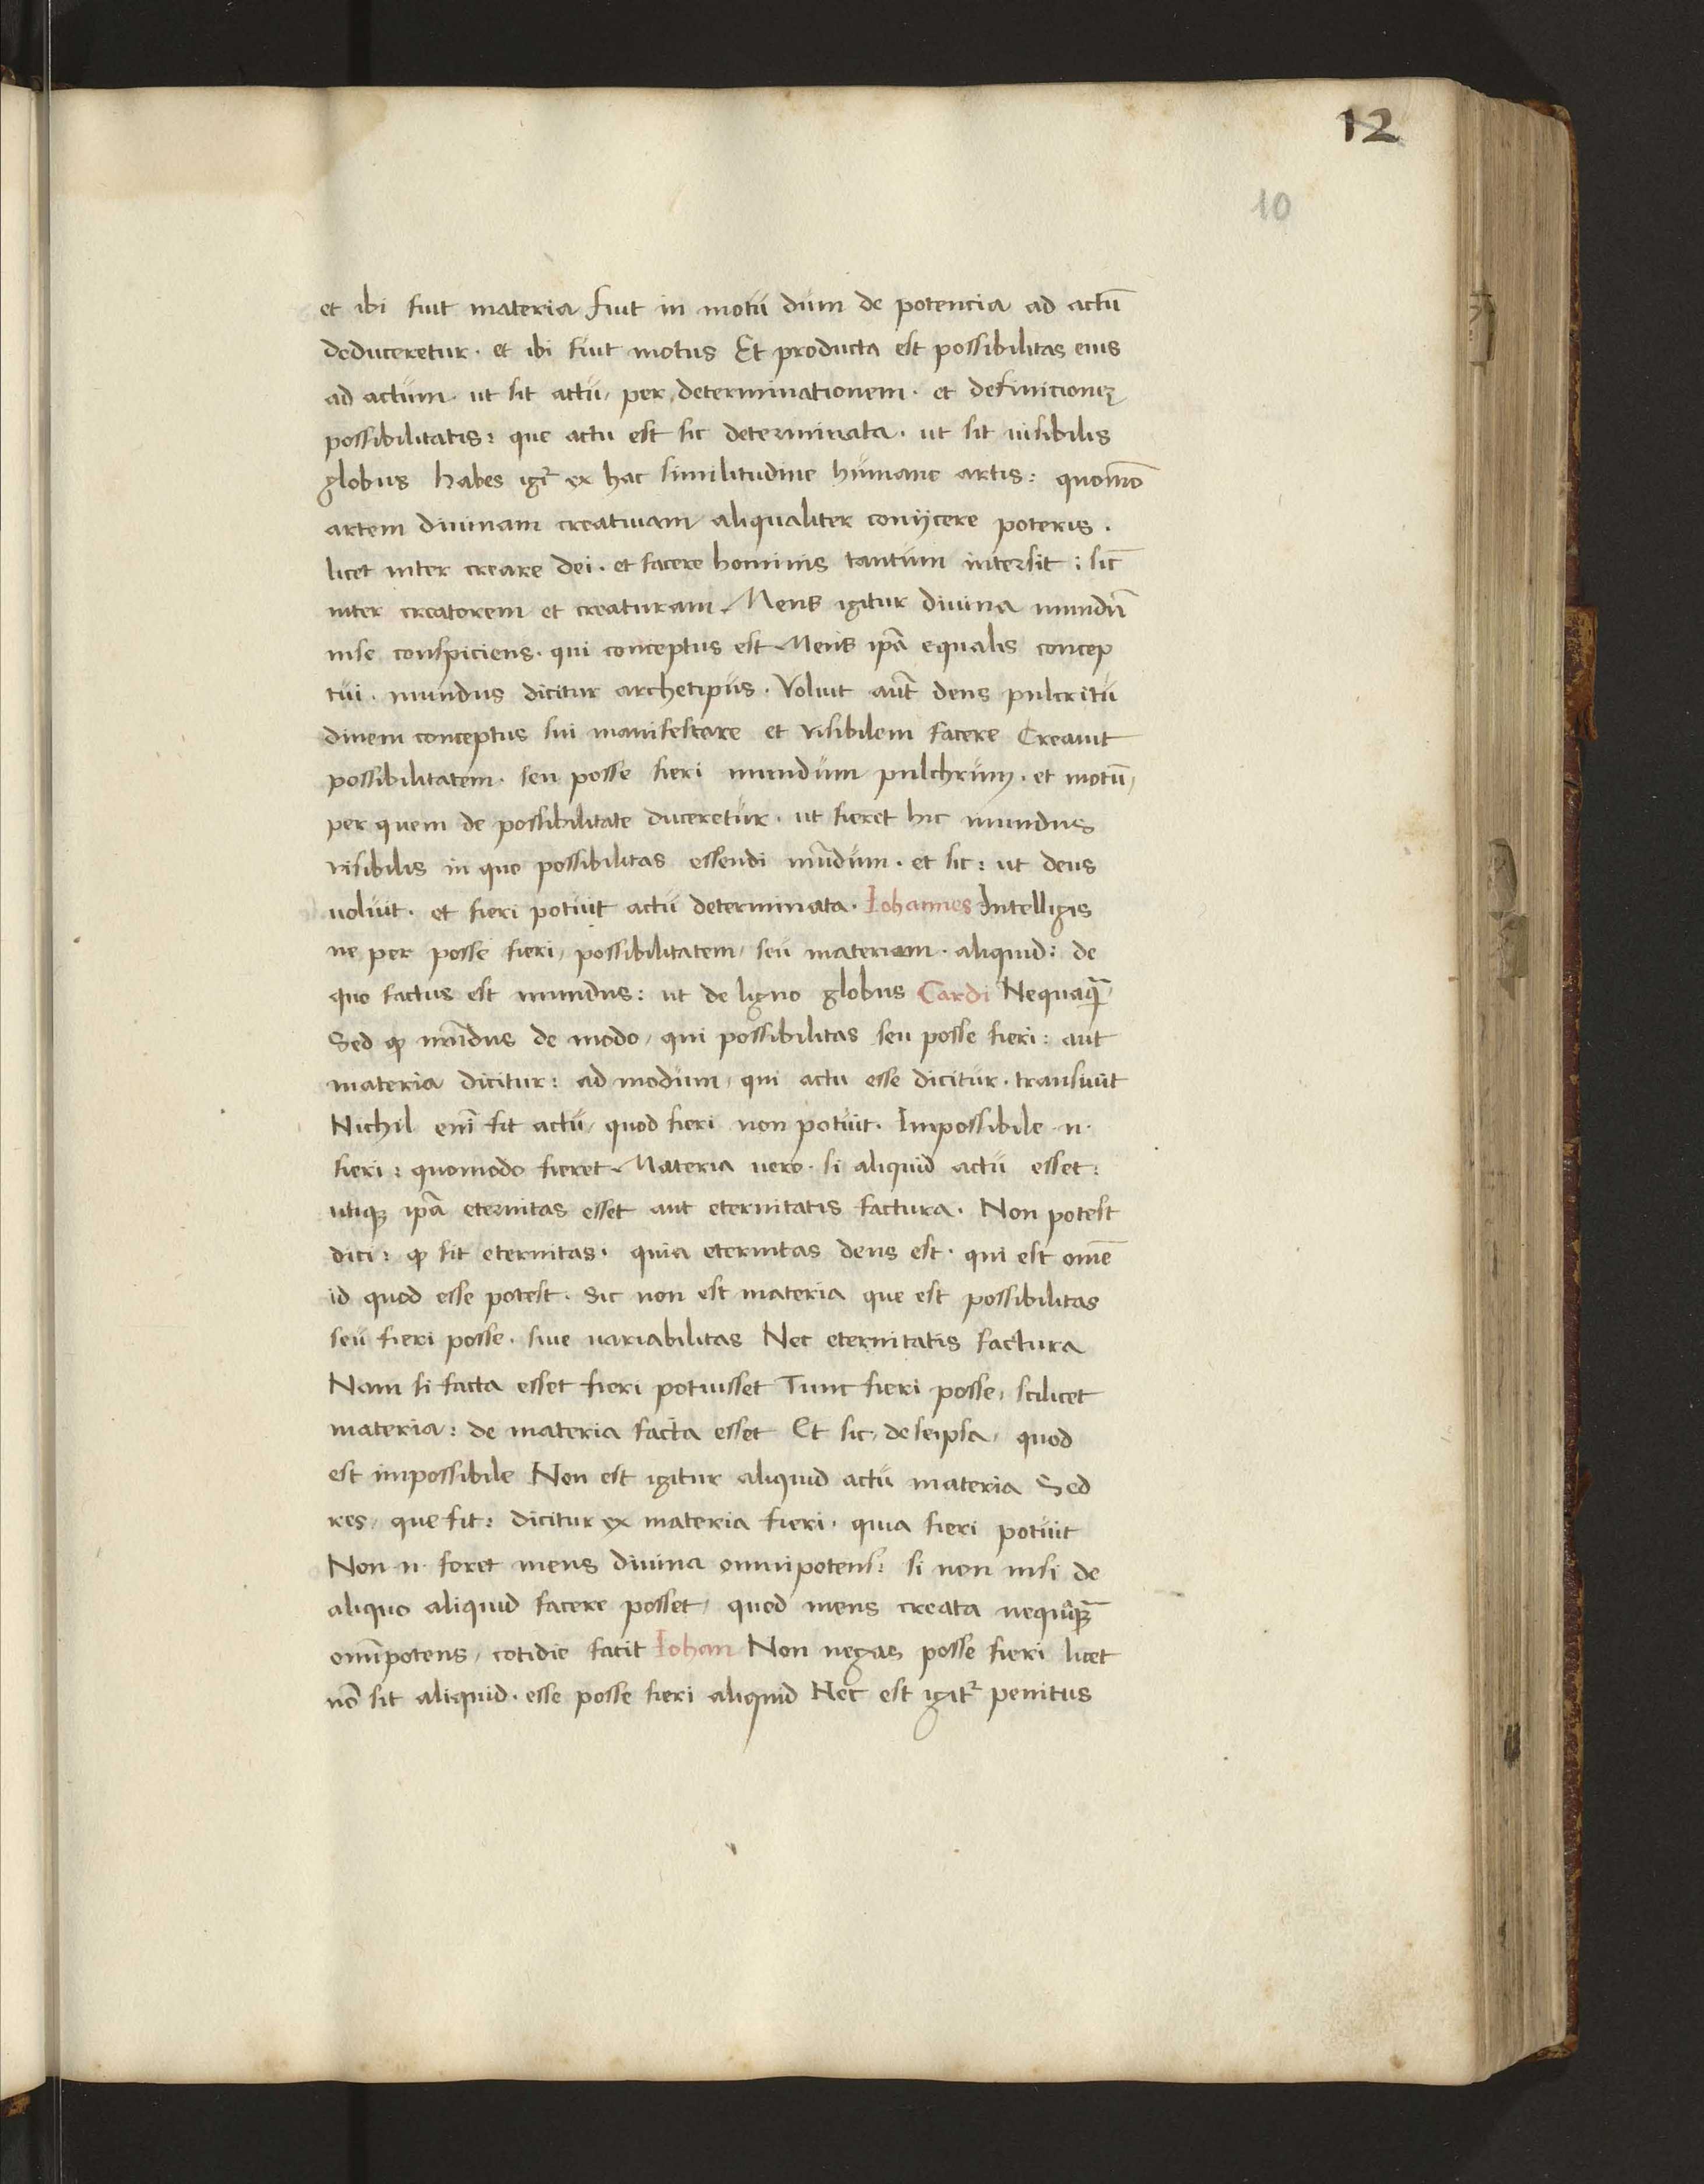 12
10
et ibi fuit materia fuit in motu dum de potencia ad actū
deduceretur · et ibi fuit motus Et producta est possibilitas eius
ad actum · ut sit actu / per determinationem · et definicionē
possibilitatis : que actu est sic determinata · ut sit uisibilis
globus habes igr̄ ex hac similitudine humane artis : quomō
artem diuinam creatiuam aliqualiter conijcere poteris ·
licet inter creare dei · et facere hominis tantum intersit : sic̄
inter creatorem et creaturam Mens igitur diuina mundū
inse conspiciens · qui conceptus est Mens ip̄a equalis concep
tui · mundus dicitur archetipus · Voluit aut̄ deus pulcritu
dinem conceptus sui manifestare et visibilem facere Creauit
possibilitatem · seu posse fieri mundum pulchrum · et motū /
per quem de possibilitate duceretur · ut fieret hic mundus
visibilis in quo possibilitas essendi mūdum · et sic : ut deus
uoluit · et fieri potuit actu determinata · Iohannes Intelligis
ne per posse fieri / possibilitatem / seu materiam · aliquid : de
quo factus est mundus : ut de ligno globus Cardi Nequaꝙ̄
Sed ꝙ mūdus de modo / qui possibilitas seu posse fieri : aut
materia dicitur : ad modum / qui actu esse dicitur · transiuit
Nichil enī fit actu / quod fieri non potuit · Impossibile · n ·
fieri : quomodo fieret Materia uero · si aliquid actu esset :
utiqȝ ip̄a eternitas esset aut eternitatis factura · Non potest
dici : ꝙ sit eternitas · quia eternitas deus est · qui est om̄e
id quod esse potest · Sic non est materia que est possibilitas
seu fieri posse · siue uariabilitas Nec eternitatis factura
Nam si facta esset fieri potuisset Tunc fieri posse / scilicet
materia : de materia facta esset Et sic / de seipsa / quod
est impossibile Non est igitur aliquid actu materia Sed
res / que fit : dicitur ex materia fieri · quia fieri potuit
Non · n · foret mens diuina omnipotens : si non nisi de
aliquo aliquid facere posset / quod mens creata nequaꝙ̄
omīpotens / cotidie facit Iohan Non negas posse fieri licet
nō sit aliquid · esse posse fieri aliquid Nec est igit᷑ penitus